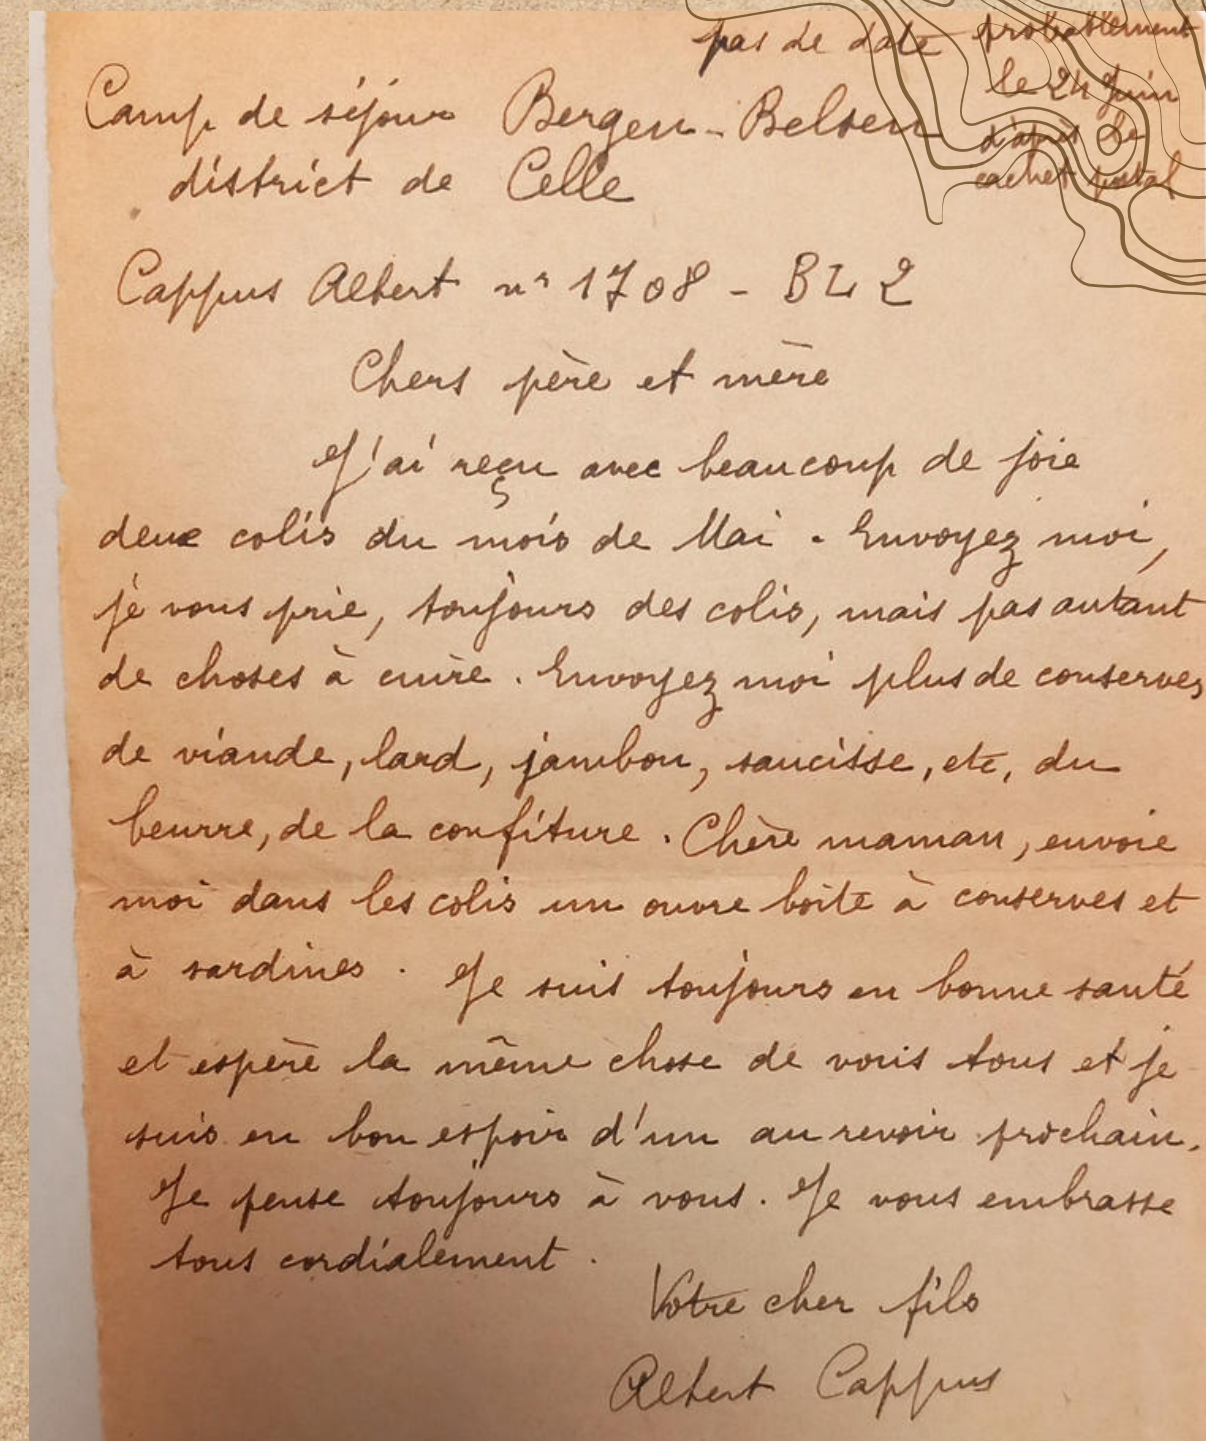 pas de date probablement
le 24 Juin
d'après le
cachet postal
Camp de séjour Bergen-Belsen
district de Celle
Cappus Albert nr 1708 - BL 2
Chers père et mère
J'ai reçu avec beaucoup de joie
deux colis du mois de Mai. Envoyez moi,
je vous prie, toujours des colis, mais pas autant
de choses à cuire. Envoyez moi plus de conserves
de viande, lard, jambon, saucisse, etc, du
beurre, de la confiture. Chère maman, envoie
moi dans les colis un ouvre boîte à conserves et
à sardines. Je suis toujours en bonne santé
et espère la même chose de vous tous et je
suis en bon espoir d'un au revoir prochain.
Je pense toujours à vous. Je vous embrasse
tous cordialement.
Votre cher fils
Albert Cappus